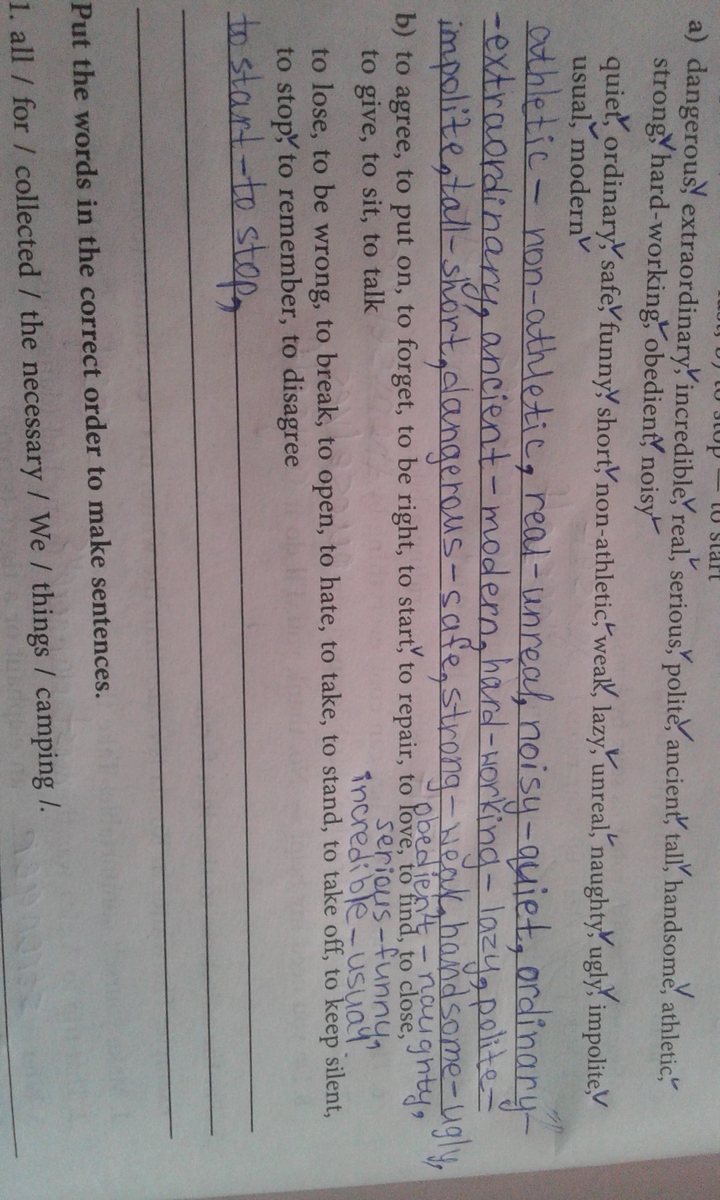 to stop — to start
a) dangerous, extraordinary, incredible, real, serious, polite, ancient, tall, handsome, athletic,
strong, hard-working, obedient, noisy
quiet, ordinary, safe, funny, short, non-athletic, weak, lazy, unreal, naughty, ugly, impolite,
usual, modern
athletic – non-athletic, real-unreal, noisy-quiet, ordinary-
-extraordinary, ancient-modern, hard-working-lazy, polite-
impolite, tall-short, dangerous-safe, strong-weak, handsome-ugly,
obedient-naughty,
serious-funny,
incredible-usual.
b) to agree, to put on, to forget, to be right, to start, to repair, to love, to find, to close,
to give, to sit, to talk
to lose, to be wrong, to break, to open, to hate, to take, to stand, to take off, to keep silent,
to stop, to remember, to disagree
to start-to stop,
Put the words in the correct order to make sentences.
1. all / for / collected / the necessary / We / things / camping /.